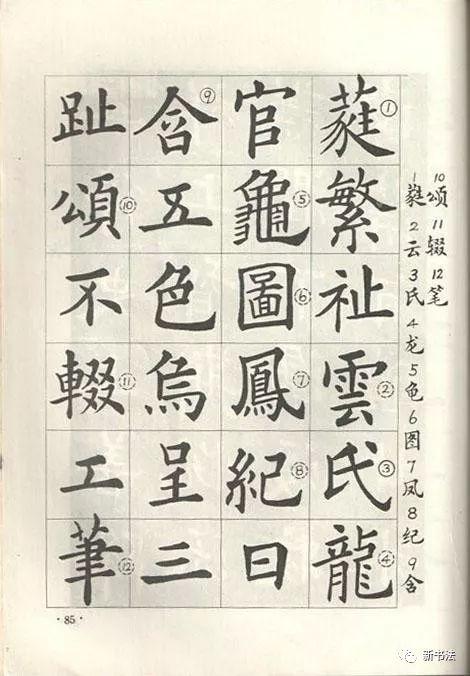 蕤①繁祉雲②氏③龍④
官龜⑤圖⑥鳳⑦紀⑧日
含⑨五色烏呈三
趾頌⑩不輟⑪工筆⑫
1蕤2云3氏4龙5龟6图7凤8纪9含
10颂11辍12笔
·85·
新书法